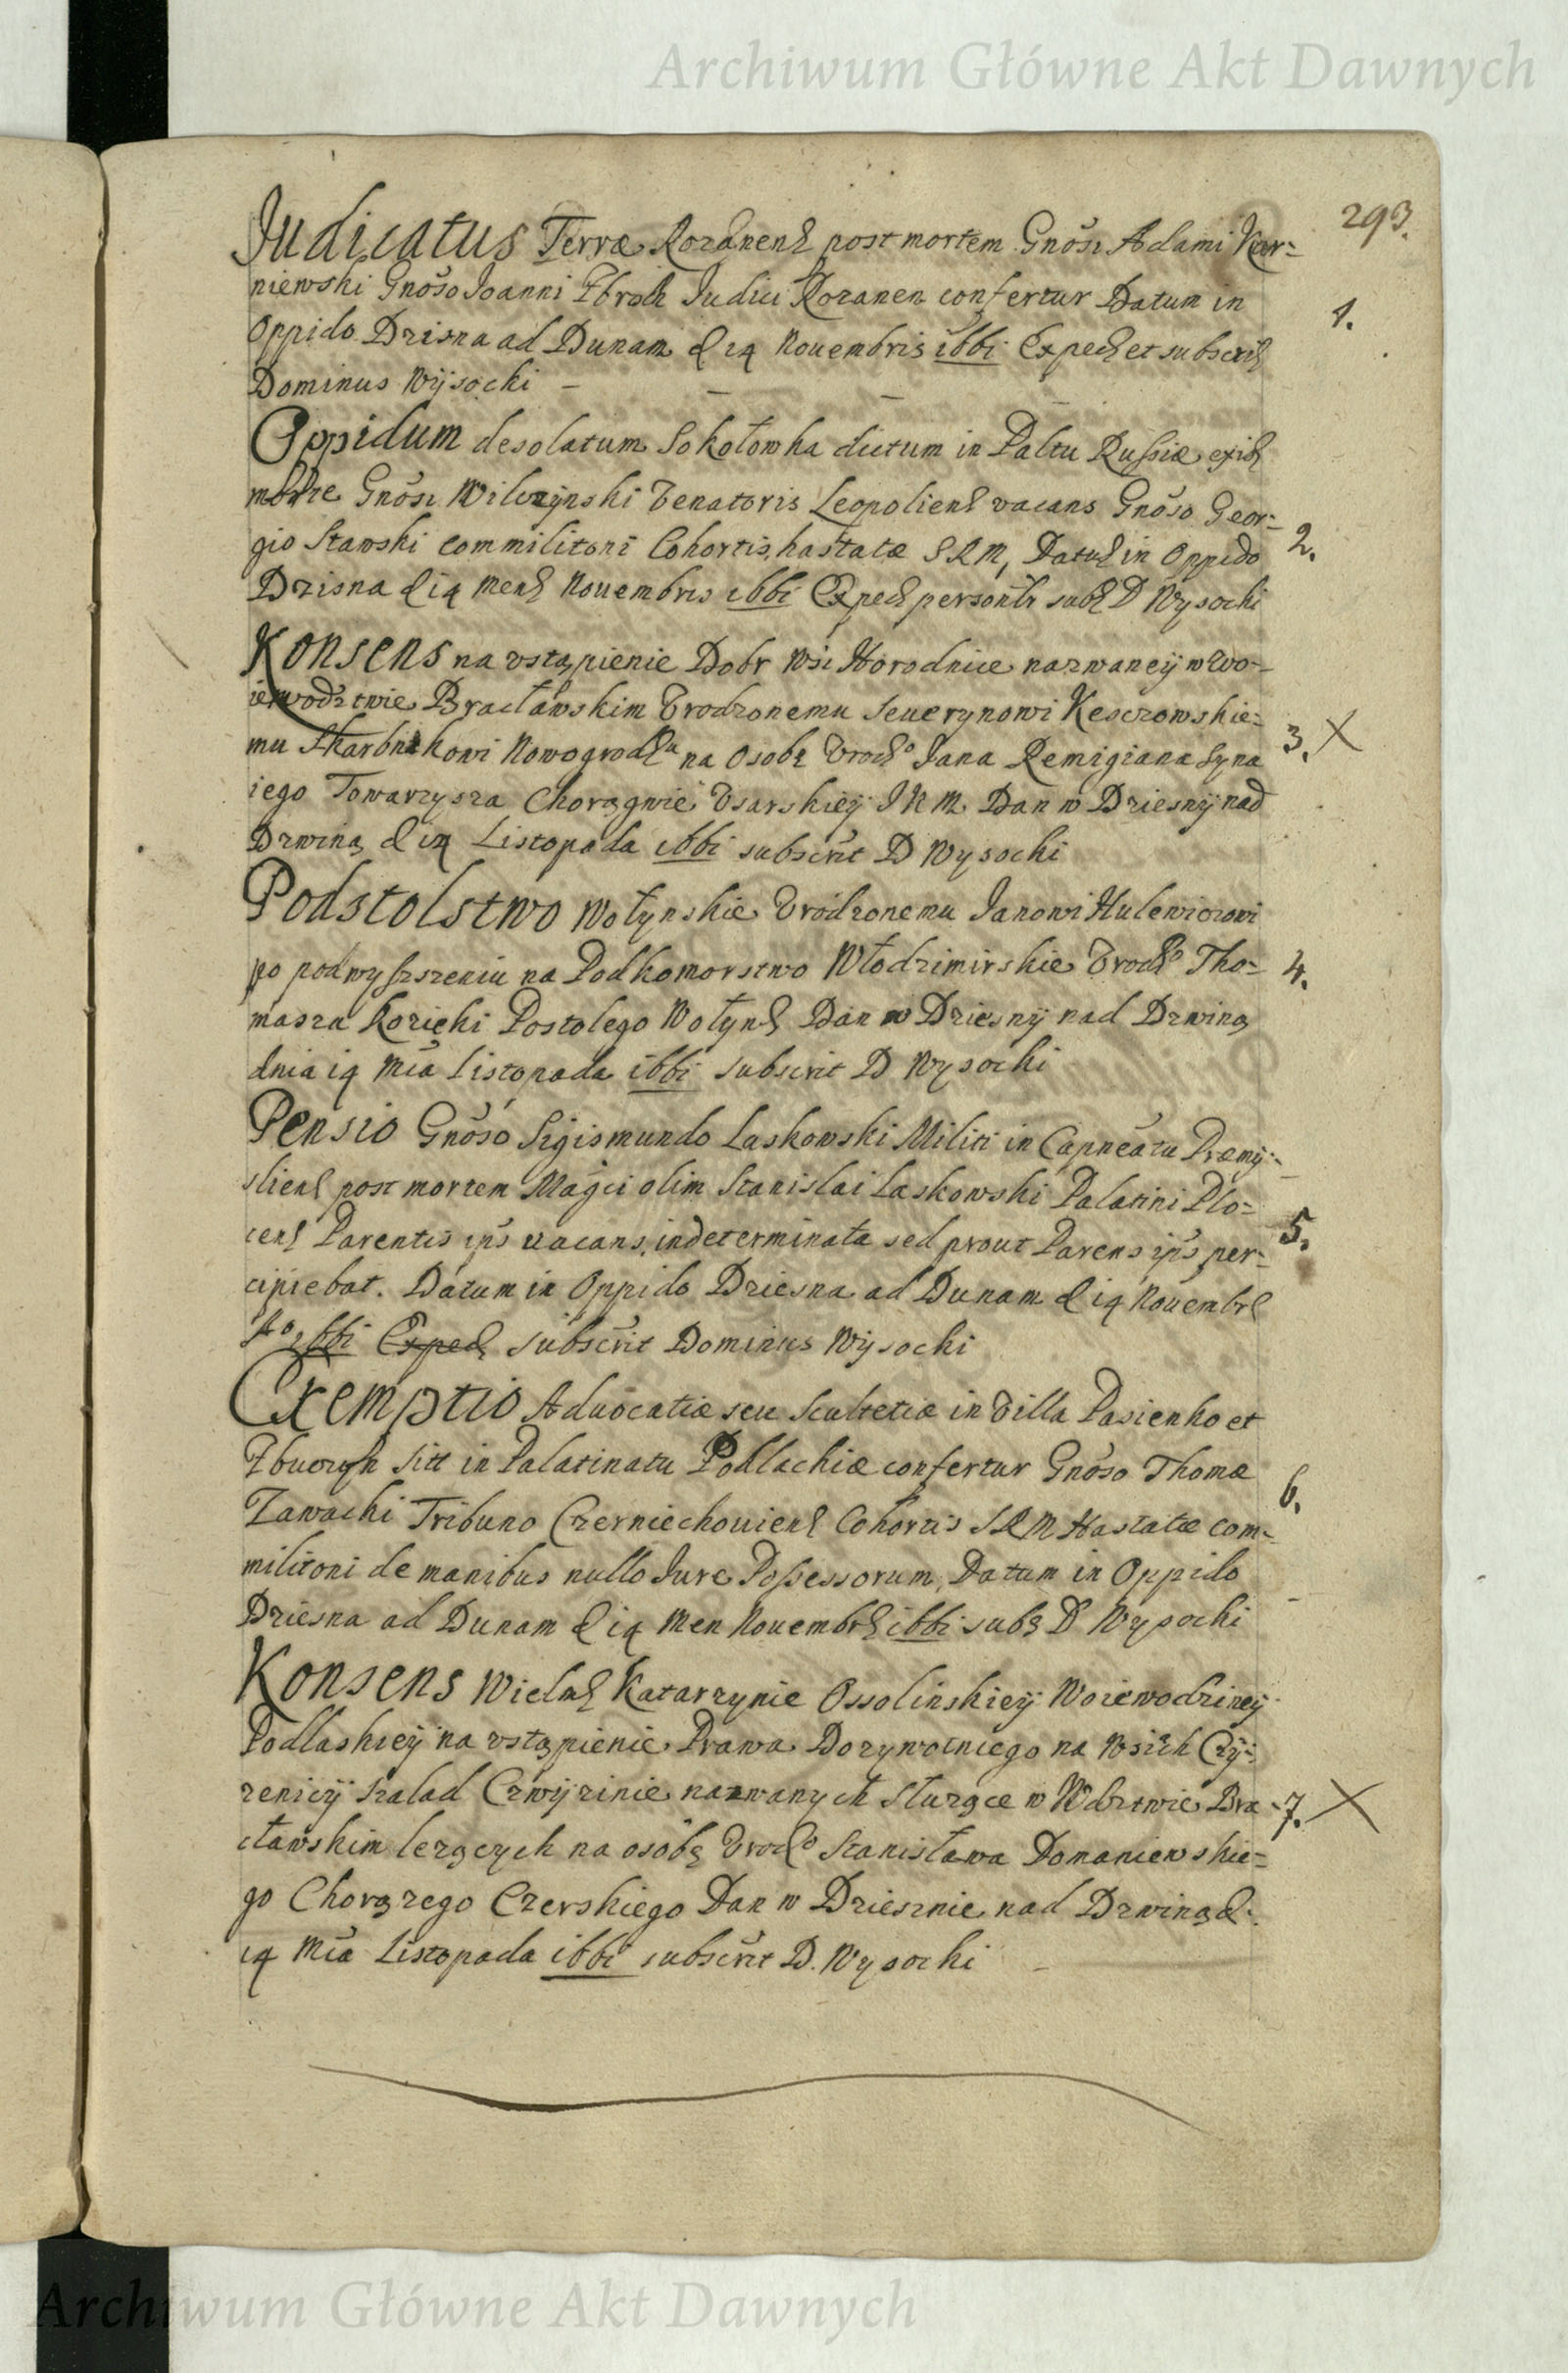 Archiwum Główne Akt Dawnych
293.
Judicatus Terræ Rozanens post mortem Gnosi Adami Kar-
niewski Gnoso Joanni Judici Rozanen confertur Datum in
1.
Oppido Drisna ad Dunam d 14 Nouembris 1661 Exped et subscrit
Dominus Wÿsocki –
Oppidum desolatum Sokołowka dictum in Paltu Russiæ exiq
morte Gnosi Wilczÿnski Venatoris Leopoliens vacans Gnoso Geor-
2.
gio Stawski commilitoni Cohortis hastatæ SRM, Datum in Oppido
Drisna d 14 Mens Nouembris 1661 Exped personlr subs D Wysocki
Konsens na vstąpienie Dobr Wsi Horodnice nazwaneÿ w Wo-
iewodztwie Bracławskim Vrodzonemu Seuerynowi Keszowskie-
3. X
mu Skarbnikowi Nowogrodu na Osobę Urod° Jana Remigiana Syna
iego Towarzysza Chorągwie Vsarskieÿ JKM Dan w Driesnÿ nad
Dzwiną d 14 Listopada 1661 subscrit D Wysocki
Podstolstwo Wołynskie Vrodzonemu Janowi Hulewiczowi
po podwyszszeniu na Podkomorstwo Włodzimirskie Vrod° Tho-
4.
masza Kozięki Postolego Wołyns Dan w Driesnÿ nad Dzwiną
dnia 14 Mca Listopada 1661 subscrit D Wysocki
Pensio Gnoso Sigismundo Laskowski Militi in Capneatu Præmÿ-
sliens post mortem Magci olim Stanislai Laskowski Palatini Plo-
5.
cens Parentis ips vacans, indeterminata sed prout Parens ips per-
cipiebat. Datum in Oppido Driesna ad Dunam d 14 Nouembrs
A° 1661 Exped subscrit Dominus Wÿsocki
Exemptio Aduocatiæ seu Scultetiæ in Villa Pasienko et
sitt in Palatinatu Podlachiæ confertur Gnoso Thomæ
6.
Zawacki Tribuno Czerniechouiens Cohortis SRM Hastatæ com-
militoni de manibus nullo Jure Possessorum, Datum in Oppido
Driesna ad Dunam d 14 Men Nouembrs 1661 subs D Wysocki
Konsens Wielms Katarzynie Ossolinskieÿ Woiewodzineÿ
Podlaskieÿ na vstąpienie Prawa Dozywotniego na Wsiĉh
nazwanych w Wdztwie Bra-
7. X
cławskim lezących na osobę Vrod° Stanisława Domaniewskie-
go Chorązego Czerskiego Dan w Driesznie nad Dzwiną d.
14 Mca Listopada 1661 subscrit D. Wysocki –
Archiwum Główne Akt Dawnych